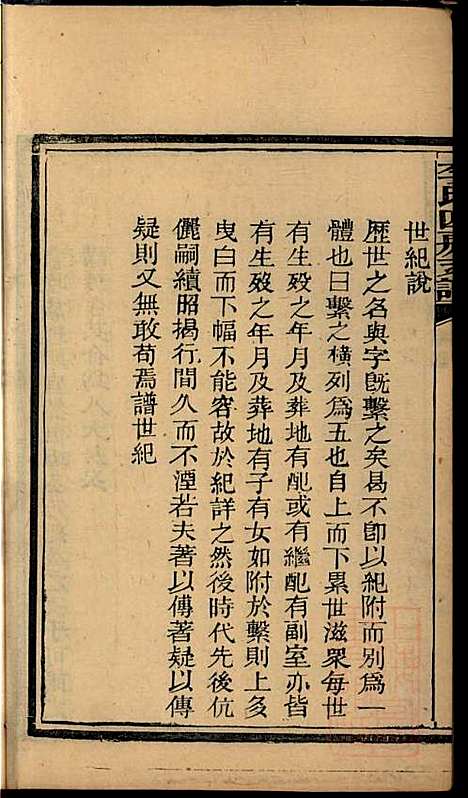 世紀說
歷世之名與字旣繫之矣曷不卽以紀附而別爲一
體也曰繫之橫列爲五也自上而下累世滋眾每世
有生歿之年月及葬地有配或有繼配有副室亦皆
有生歿之年月及葬地有子有女如附於繫則上多
曳白而下幅不能容故於紀詳之然後時代先後伉
儷嗣續昭揭行間久而不湮若夫著以傳著疑以傳
疑則又無敢苟焉譜世紀